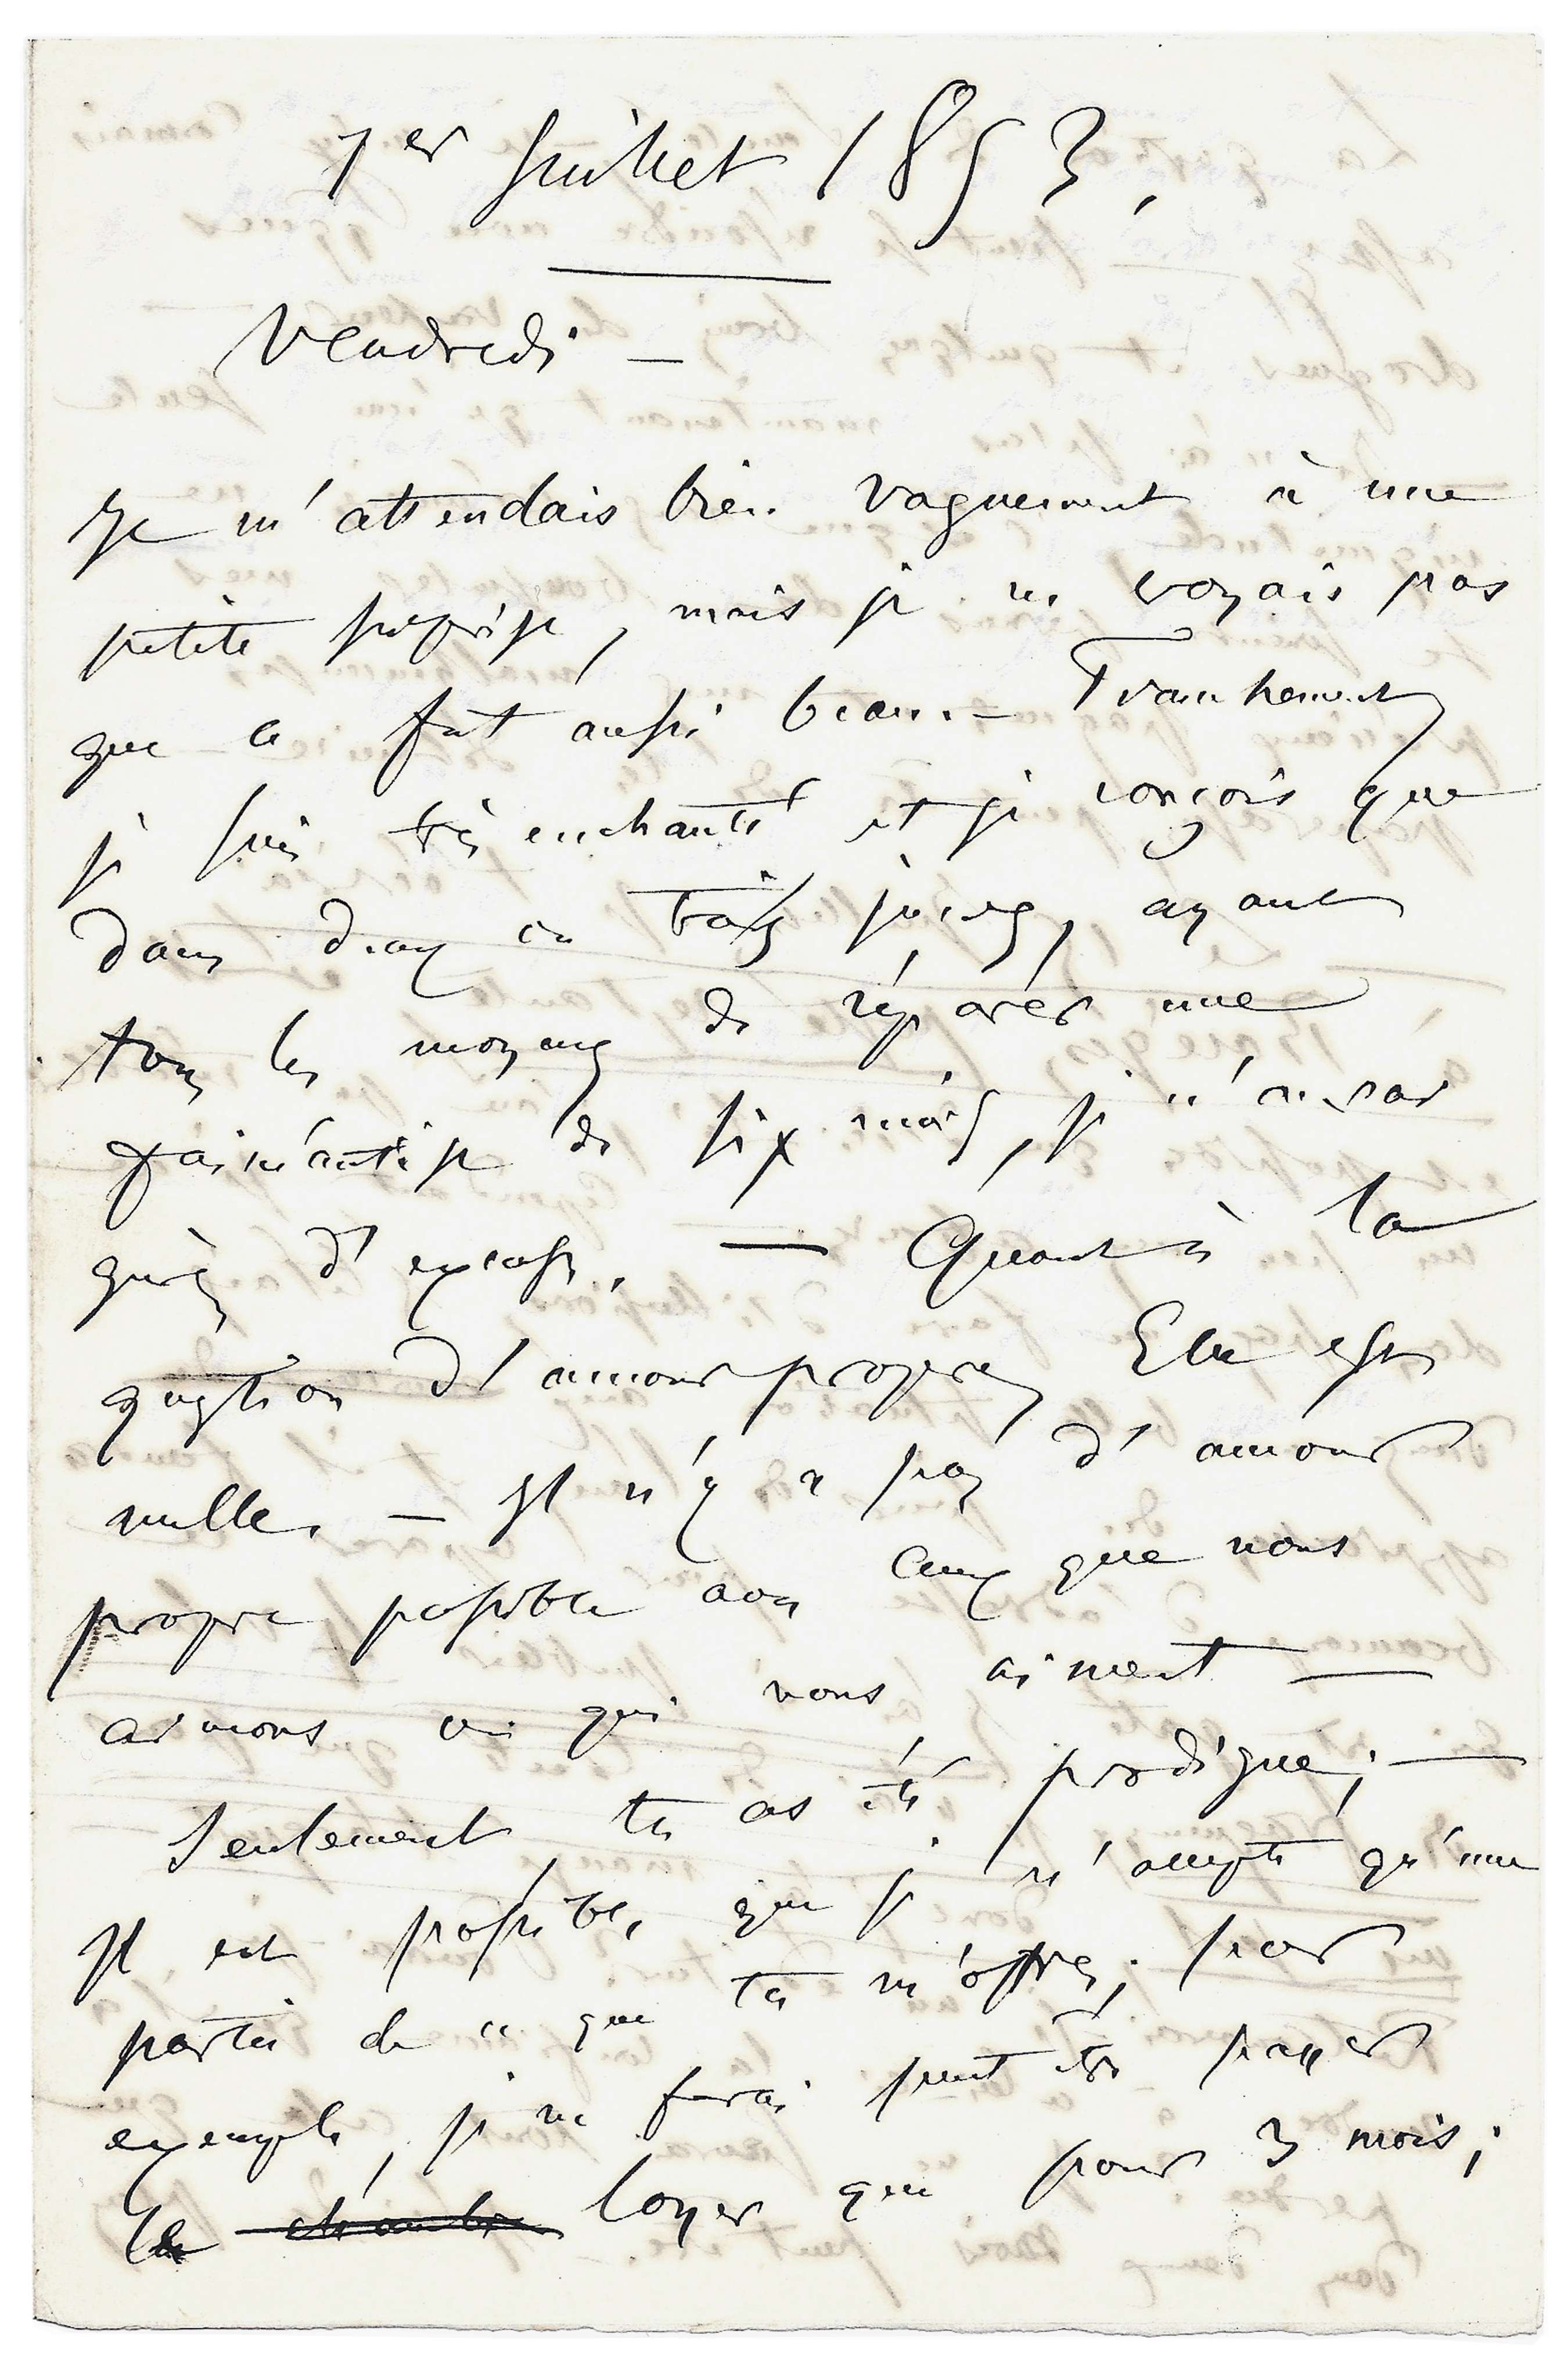 1er Juillet 1853.
Vendredi —
Je m'attendais bien vaguement à une
petite surprise, mais je ne croyais pas
que ce fût aussi beau. — Franchement,
je suis très enchanté et je conçois que
dans deux ou trois jours, ayant
tous les moyens de réparer une
fainéantise de six mois, je n'aurai
guères d'excuses. — Quant à la
question d'amour propre, Elle est
nulle. — Il n'y a pas d'amour
propre possible avec ceux que nous
aimons ou qui nous aiment —
Seulement, tu as été prodigue; —
Il est possible, que je n'accepte qu'une
partie de ce que tu m'offres; par
exemple, je ne ferai peut être payer
le chambre loyer que pour 3 mois;